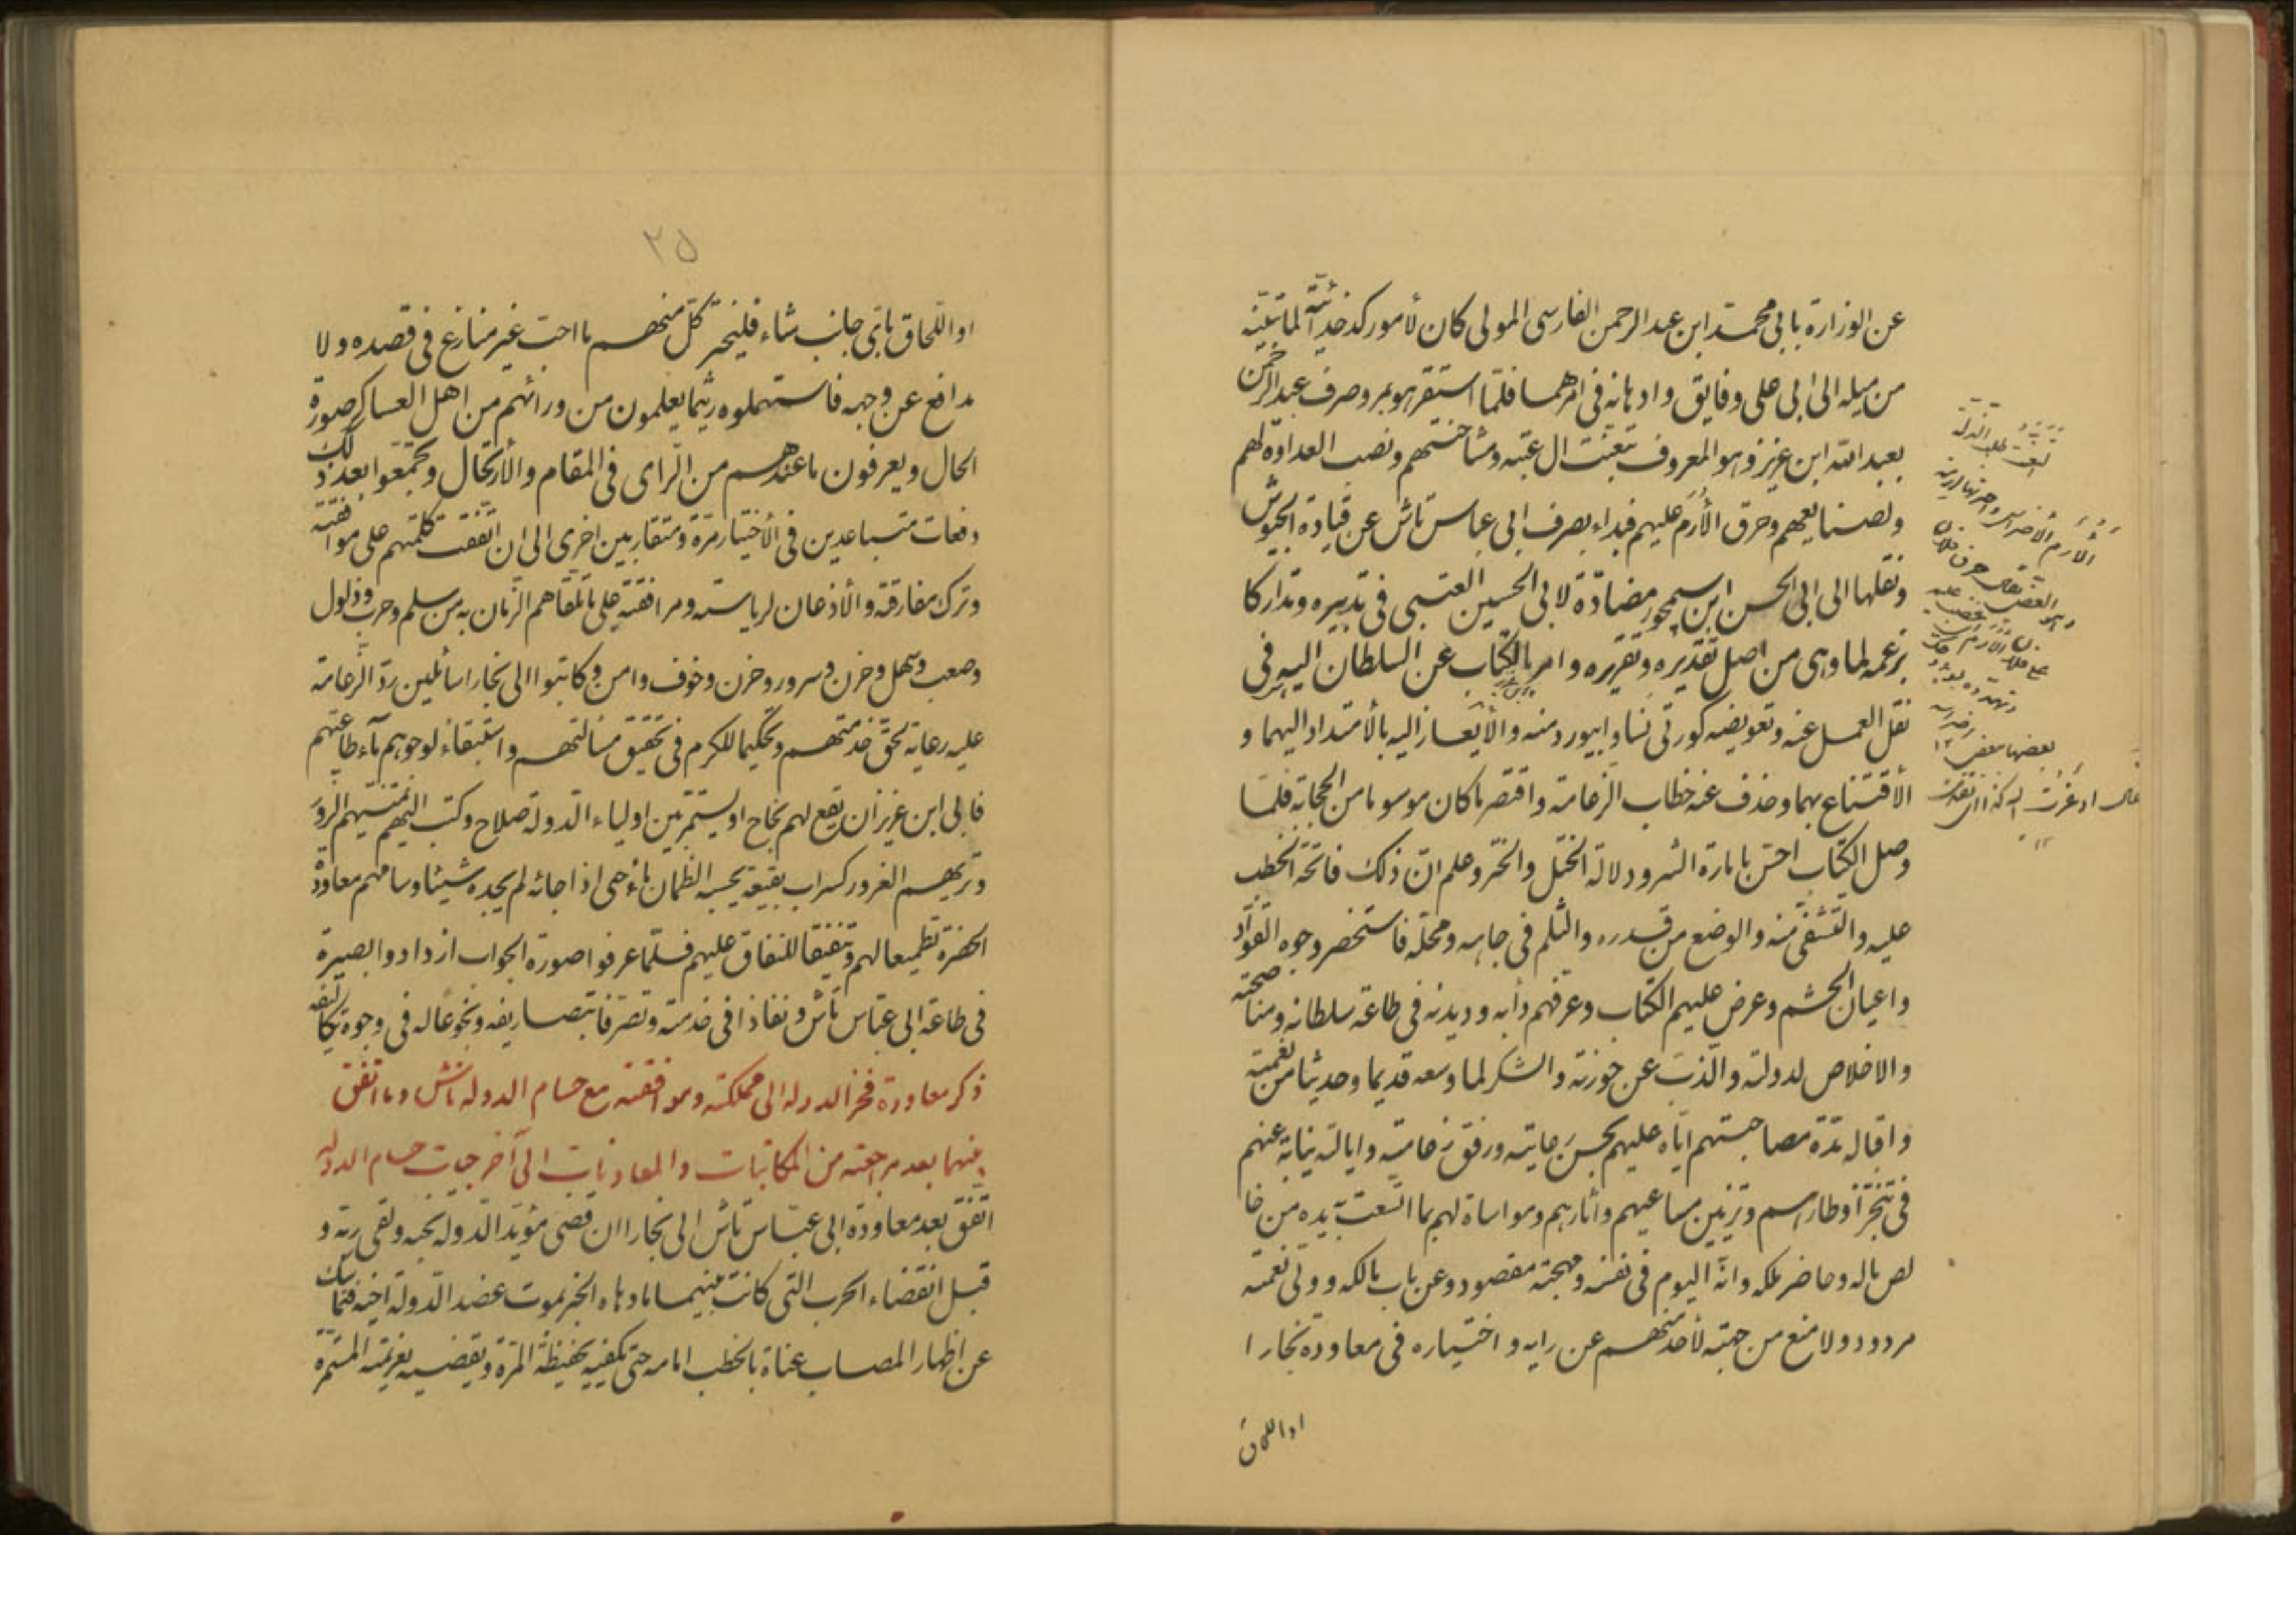 عن الوزارة بابى محمد ابن عبد الرحمن الفارسى المولى كان لأمور كدخدائيته لما تبينه
من ميله الى ابى على وفايق وادهانه فى امرهما فلما استقر هو بمرو صرف عبد الرحمن
بعبد الله ابن عزيز وهو المعروف بتعنت ال عتبه ومشاحنتهم ونصب العداوة لهم
ولصنايعهم وحرق الأرم عليهم فبداء بصرف ابى عباس تاش عن قيادة الجيوش
ونقلها الى ابى الحسن ابن سيمجور مضادّة لابى الحسين العتبى فى تدبيره وتداركا
بزعمه لما وهى من اصل تقديره وتقريره وامر بالكتاب عن السلطان اليه فى
نقل العمل عنه وتعويضه كورتى نسا وابيورد منه والأيعاز اليه بالأمتداد اليهما و
الأقتناع بهما وحذف عنه خطاب الزعامة واقتصر ما كان موسوما من الحجابة فلما
وصل الكتاب احسّ بامارة الشر ودلالة الختل والختر وعلم انّ ذلك فاتحة الخطب
عليه والتشفى منه والوضع من قدره والثلم فى جاهه ومحله فاستحضر وجوه القوّاد
واعيان الحشم وعرض عليهم الكتاب وعرفهم دأبه وديدنه فى طاعة سلطانه ومناصحته
والاخلاص لدولته والذبّ عن حوزته والشكر لما وسعه قديما وحديثا من نعمته
واقاله مدّة مصاحبتهم ايّاه عليهم بحسن رعايته ورفق زعامته وايالته نيابة عنهم
فى تنجّز أوطارهم وتزيين مساعيهم وأثارهم ومواساة لهم بما اتّسعت يده من خا
لص ماله وحاضر ملكه وانّه اليوم فى نفسه ومهجته مقصود وعن باب مالكه وولى نعمته
مردود ولا منع من جهته لأحد منهم عن رايه واختياره فى معاودة بخارا
او اللحاق
الأرم الأضراس
بعضها ببعض ١٢
٢٥
او اللّحاق باىّ جانب شاء فليخير كلّ منهم ما احبّ غير منازع فى قصده ولا
مدافع عن وجهه فاستمهلوه ريثما يعلمون من ورائهم من اهل العساكر صورة
الحال ويعرفون ما عندهم من الرّاى فى المقام والأرتحال وتجمّعوا بعد ذلك
دفعات متباعدين فى الأختيار مرّة ومتقاربين اخرى الى ان اتّفقت كلمتهم على موافقته
وترك مفارقته والأذعان لرياسته ومرافقته على ما تلقّاهم الزّمان به من سلم وحرب وذلول
وصعب وسهل وحزن وسرور وحزن وخوف وامن وكاتبوا الى بخارا سائلين ردّ الزّعامة
عليه رعاية لحقّ خدمتهم وتحكيما للكرم فى تحقيق مسالتهم واستبقاء لوجوههم مآء طاعتهم
فابى ابن عزيز ان يقع لهم نجاح او يستمر بين اولياء الدولة صلاح وكتب اليهم تمنّيهم الزّور
وتريهم الغرور كسراب بقيعة يحسبه الظمان ماء حى اذا جائه لم يجده شيئا وسامهم معاودة
الحضرة تطميعا لهم وتنفيقا للنفاق عليهم فلمّا عرفوا صورة الجواب ازدادوا بصيرة
فى طاعة ابى عبّاس تاش ونفاذا فى خدمته وتصرفا بتصاريفه ونجوعا له فى وجوه تكاليفه
ذكر معاودة فخر الدوله الى مملكته وموافقته مع حسام الدوله تاش وما اتفق
بينهما بعد مراجعته من المكاتبات والمعاونات الى آخر حيات حسام الدوله
اتّفق بعد معاودة ابى عبّاس تاش الى بخارا ان قضى مؤيد الدّولة نحبه ولقى ربّه و
قبل انقضاء الحرب التى كانت بينهما ما دهاه الخبر بموت عضد الدّولة اخيه فتماسك
عن اظهار المصاب عناة بالخطب امامه حتى تكفيه بحفيظة المرّة ويقضيه بعزيمته المستمرة